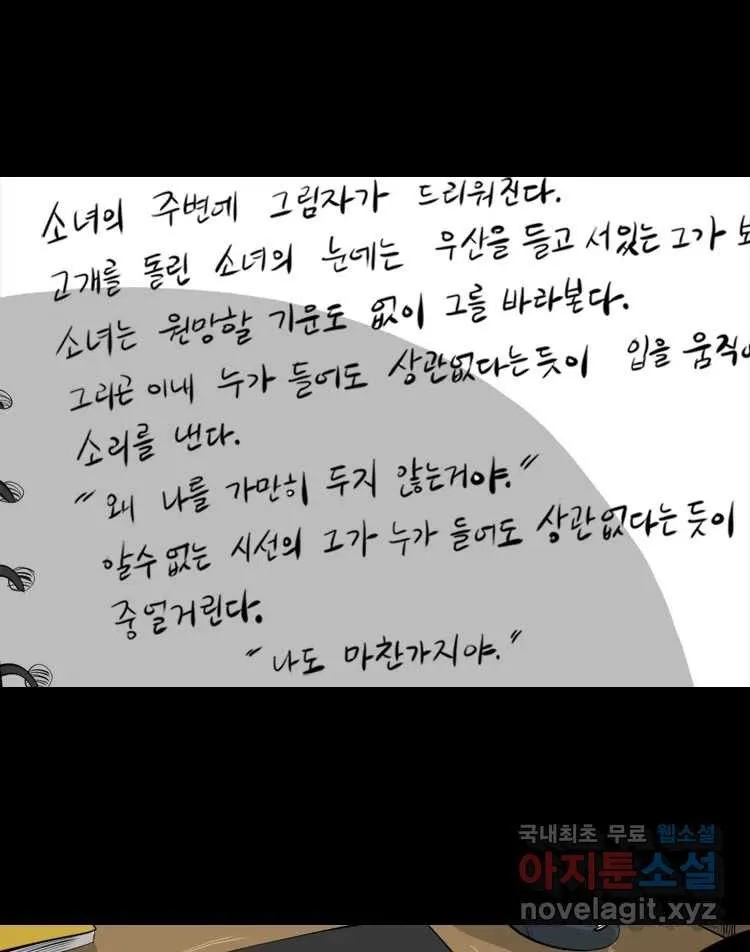 소녀의 주변에 그림자가 드리워진다.
고개를 돌린 소녀의 눈에는 우산을 들고 서있는 그가
소녀는 원망할 기운도 없이 그를 바라본다.
그리곤 이내 누가 들어도 상관없다는듯이 입을
소리를 낸다.
"왜 나를 가만히 두지 않는거야."
알수없는 시선의 그가 누가 들어도 상관없다는듯이
중얼거린다.
"나도 마찬가지야."
국내최초 무료 웹소설
아지툰소설
novelagit.xyz